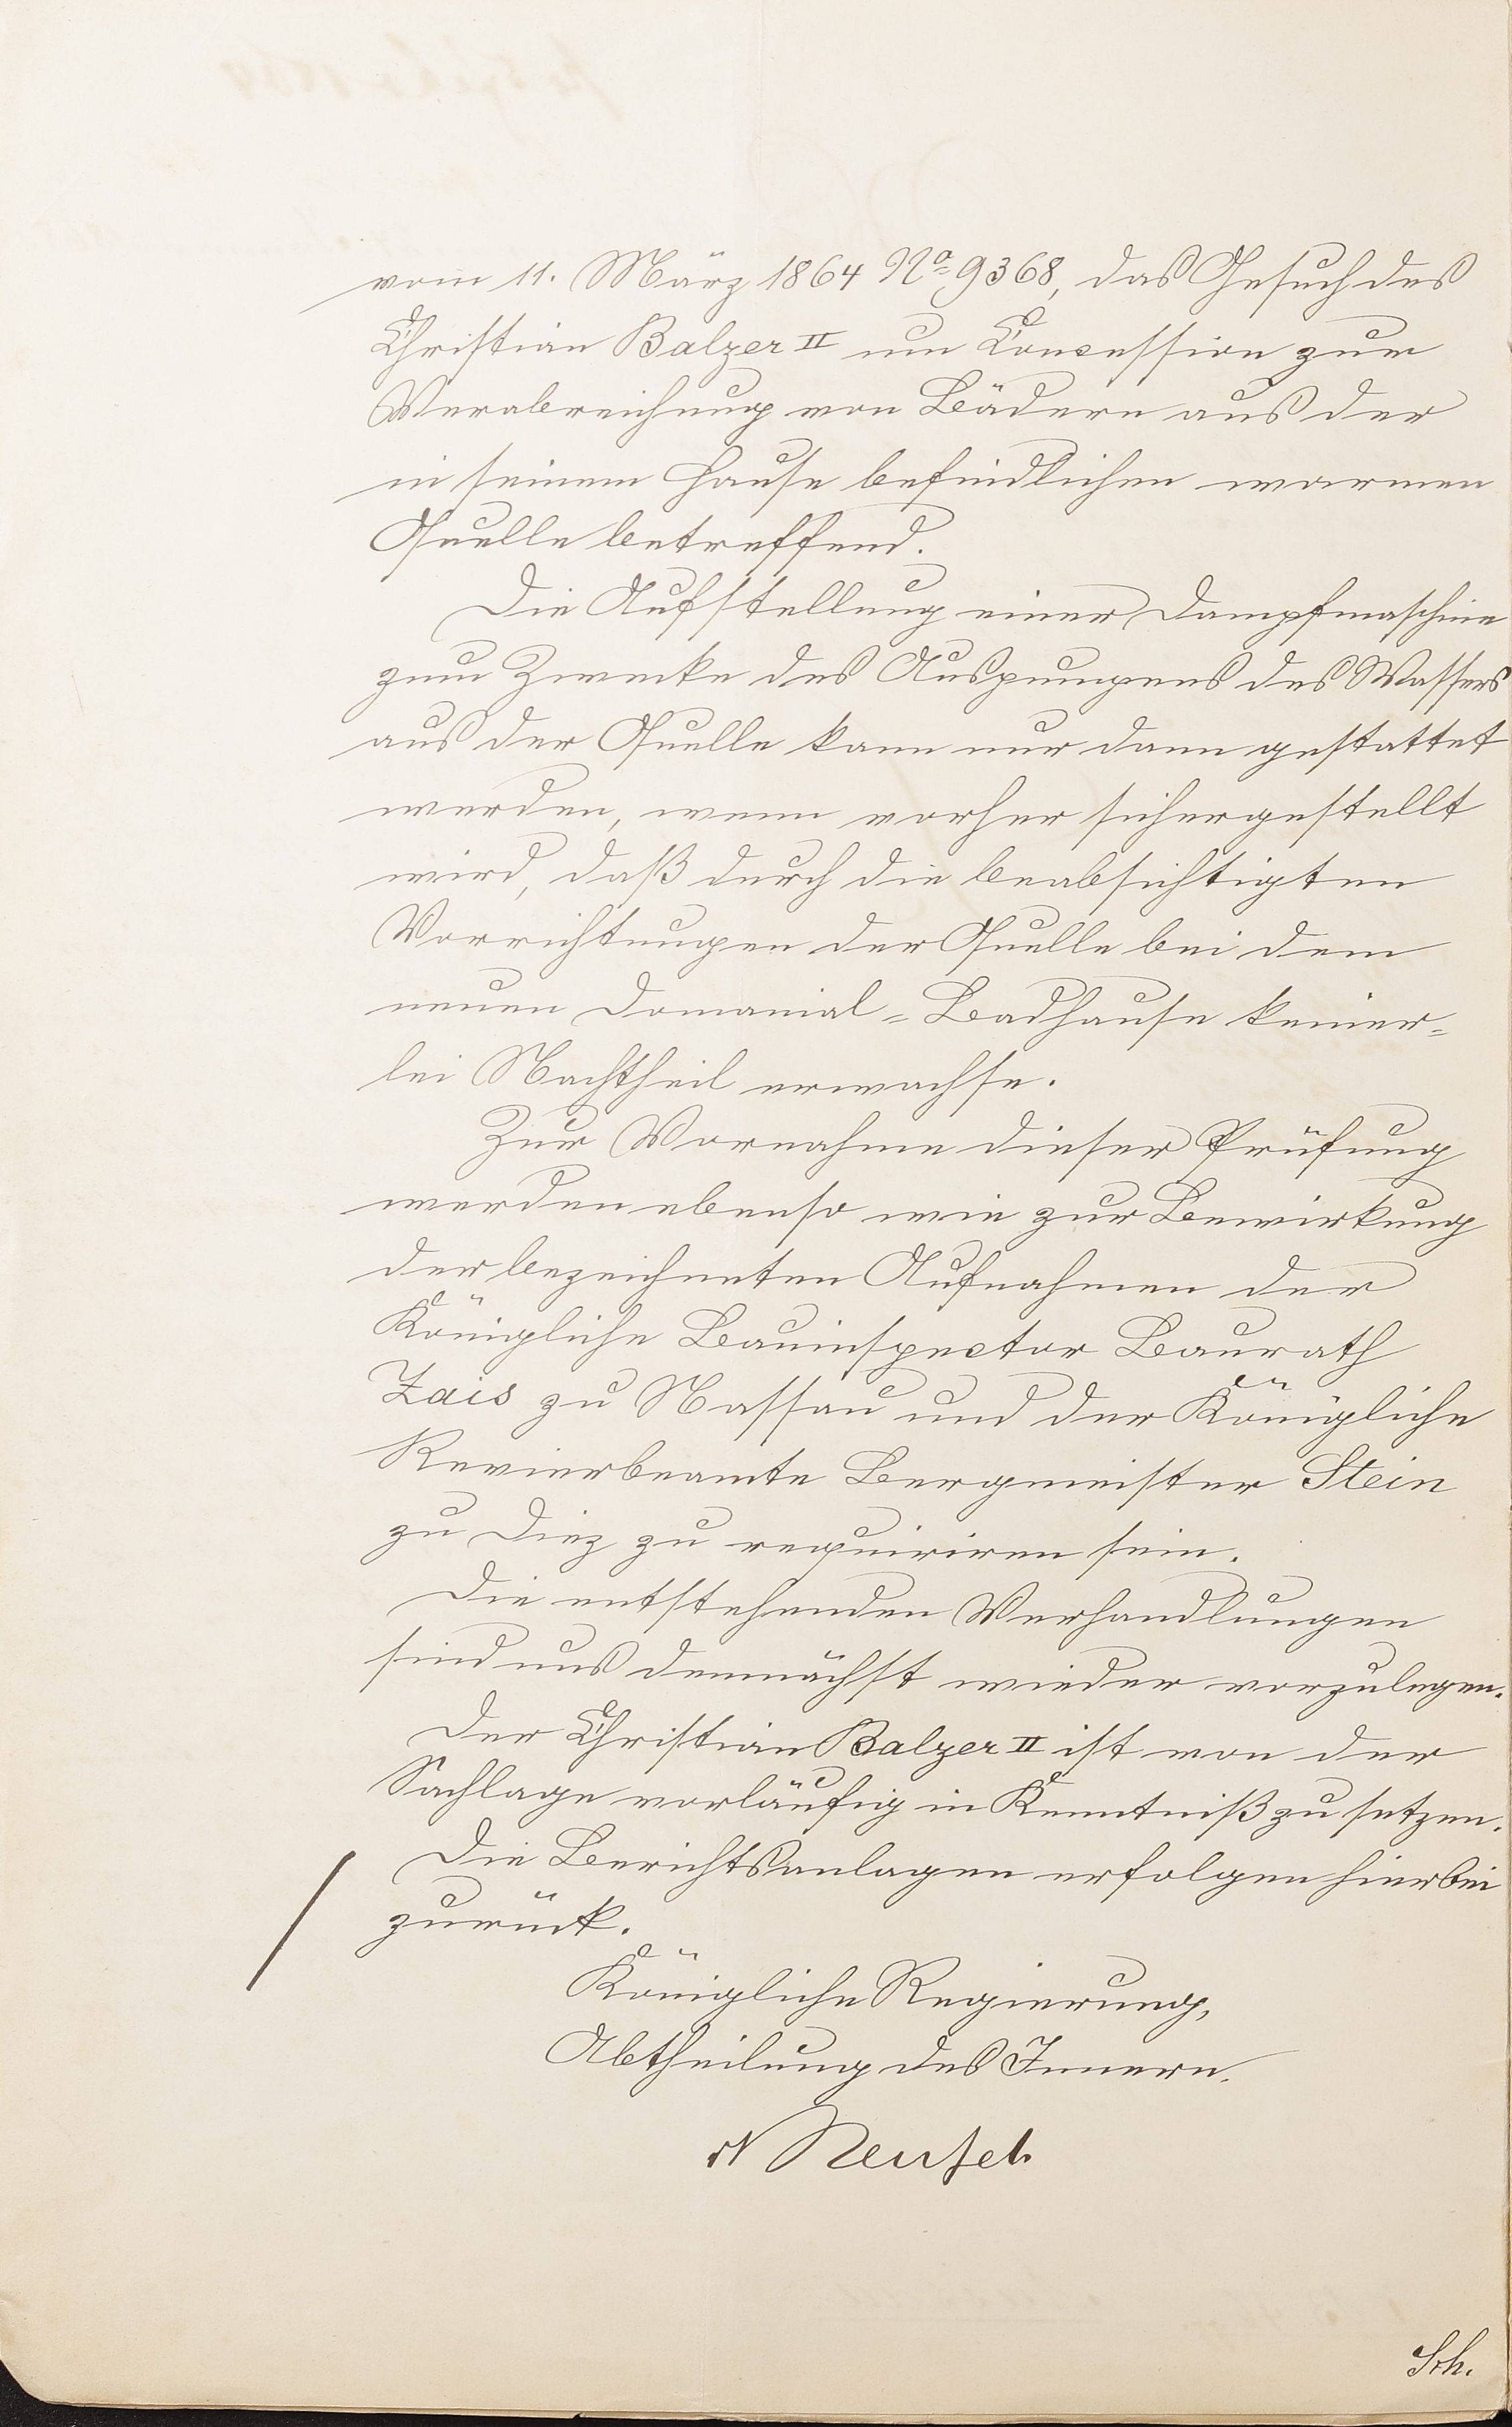 vom 11. März 1864 No 9368, das Gesuch des
Christian Balzer II um Concession zur
Verabreichung von Bädern aus der
in seinem Hause befindlichen warmen
Quelle betreffend.
Die Aufstellung einer Dampfmaschine
zum Zwecke des Auspumpens des Wassers
aus der Quelle kann nur dann gestattet
werden, wenn vorher sichergestellt
wird, daß durch die beabsichtigten
Vorrichtungen der Quelle bei dem
neuen Domanial-Badhause keiner-
lei Nachtheil erwachse.
Zur Vornahme dieser Prüfung
werden ebenso wie zur Bewirkung
der bezeichneten Aufnahmen der
Königliche Bauinspector Baurath
Zais zu Nassau und der Königliche
Revierbeamte Bergmeister Stein
zu Diez zu requiriren sein.
Die entstehenden Verhandlungen
sind uns demnächst wieder vorzulegen.
Der Christian Balzer II ist von der
Sachlage vorläufig in Kenntniß zu setzen.
Die Berichtsanlagen erfolgen hierbei
zurück.
Königliche Regierung,
Abtheilung des Innern.
Sch.